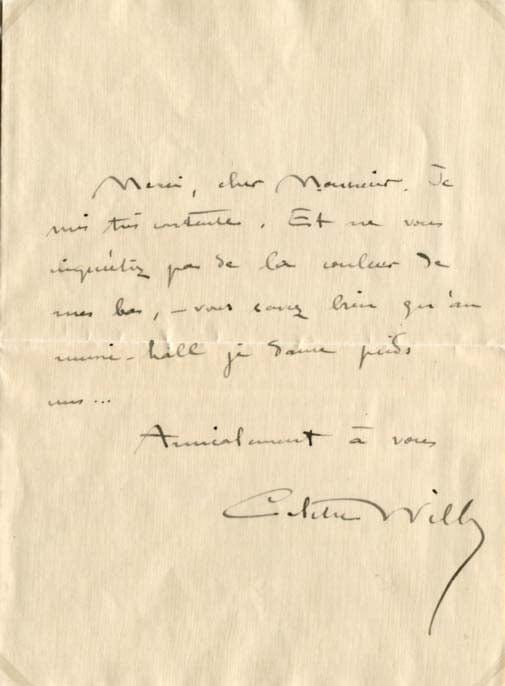 Merci, cher Monsieur. Je
suis très contente. Et ne vous
inquiétez pas de la couleur de
mes bas, – vous savez bien qu'au
music-hall je danse pieds
nus...
Amicalement à vous
Colette Willy